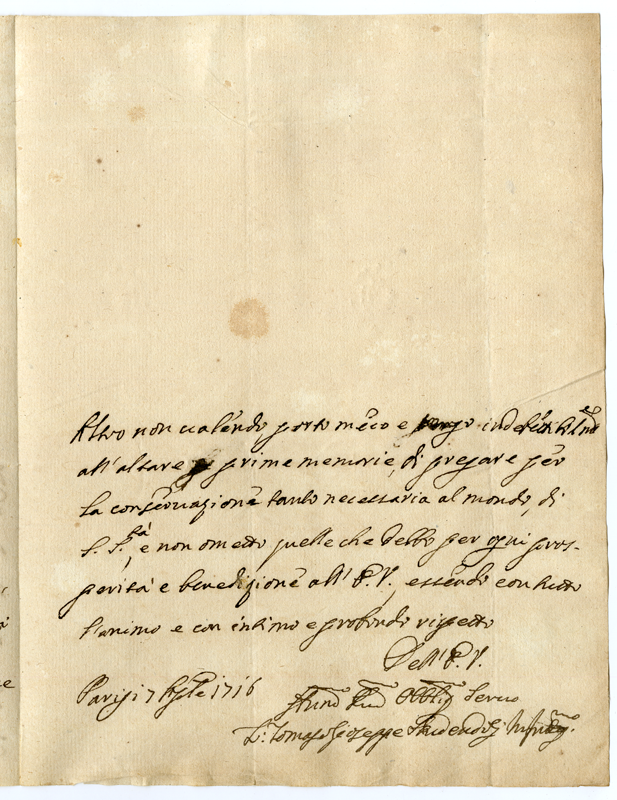 Altro non valendo porto meco e tengo indelebil.te
all'altare prime memorie, di pregare per
la conservazione tanto necessaria al mondo, di
S. S.tà, e non ometto quelle che debbo per ogni pros-
perità e benedizione all' P. V., essendo con tutto
l'animo e con intimo e profondo rispetto
Dell' P. V.
Parigi 7 Agste 1716
Obblig Servo
Tomaso Gioseppe